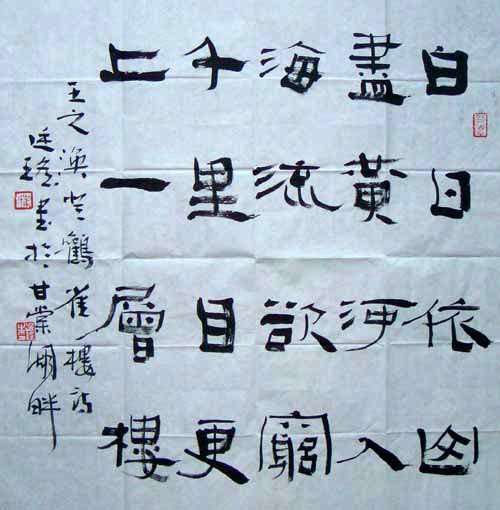 白日依山
盡黃河入
海流欲窮
千里目更
上一層樓
王之渙登鸛雀樓詩
書於甘棠湖畔